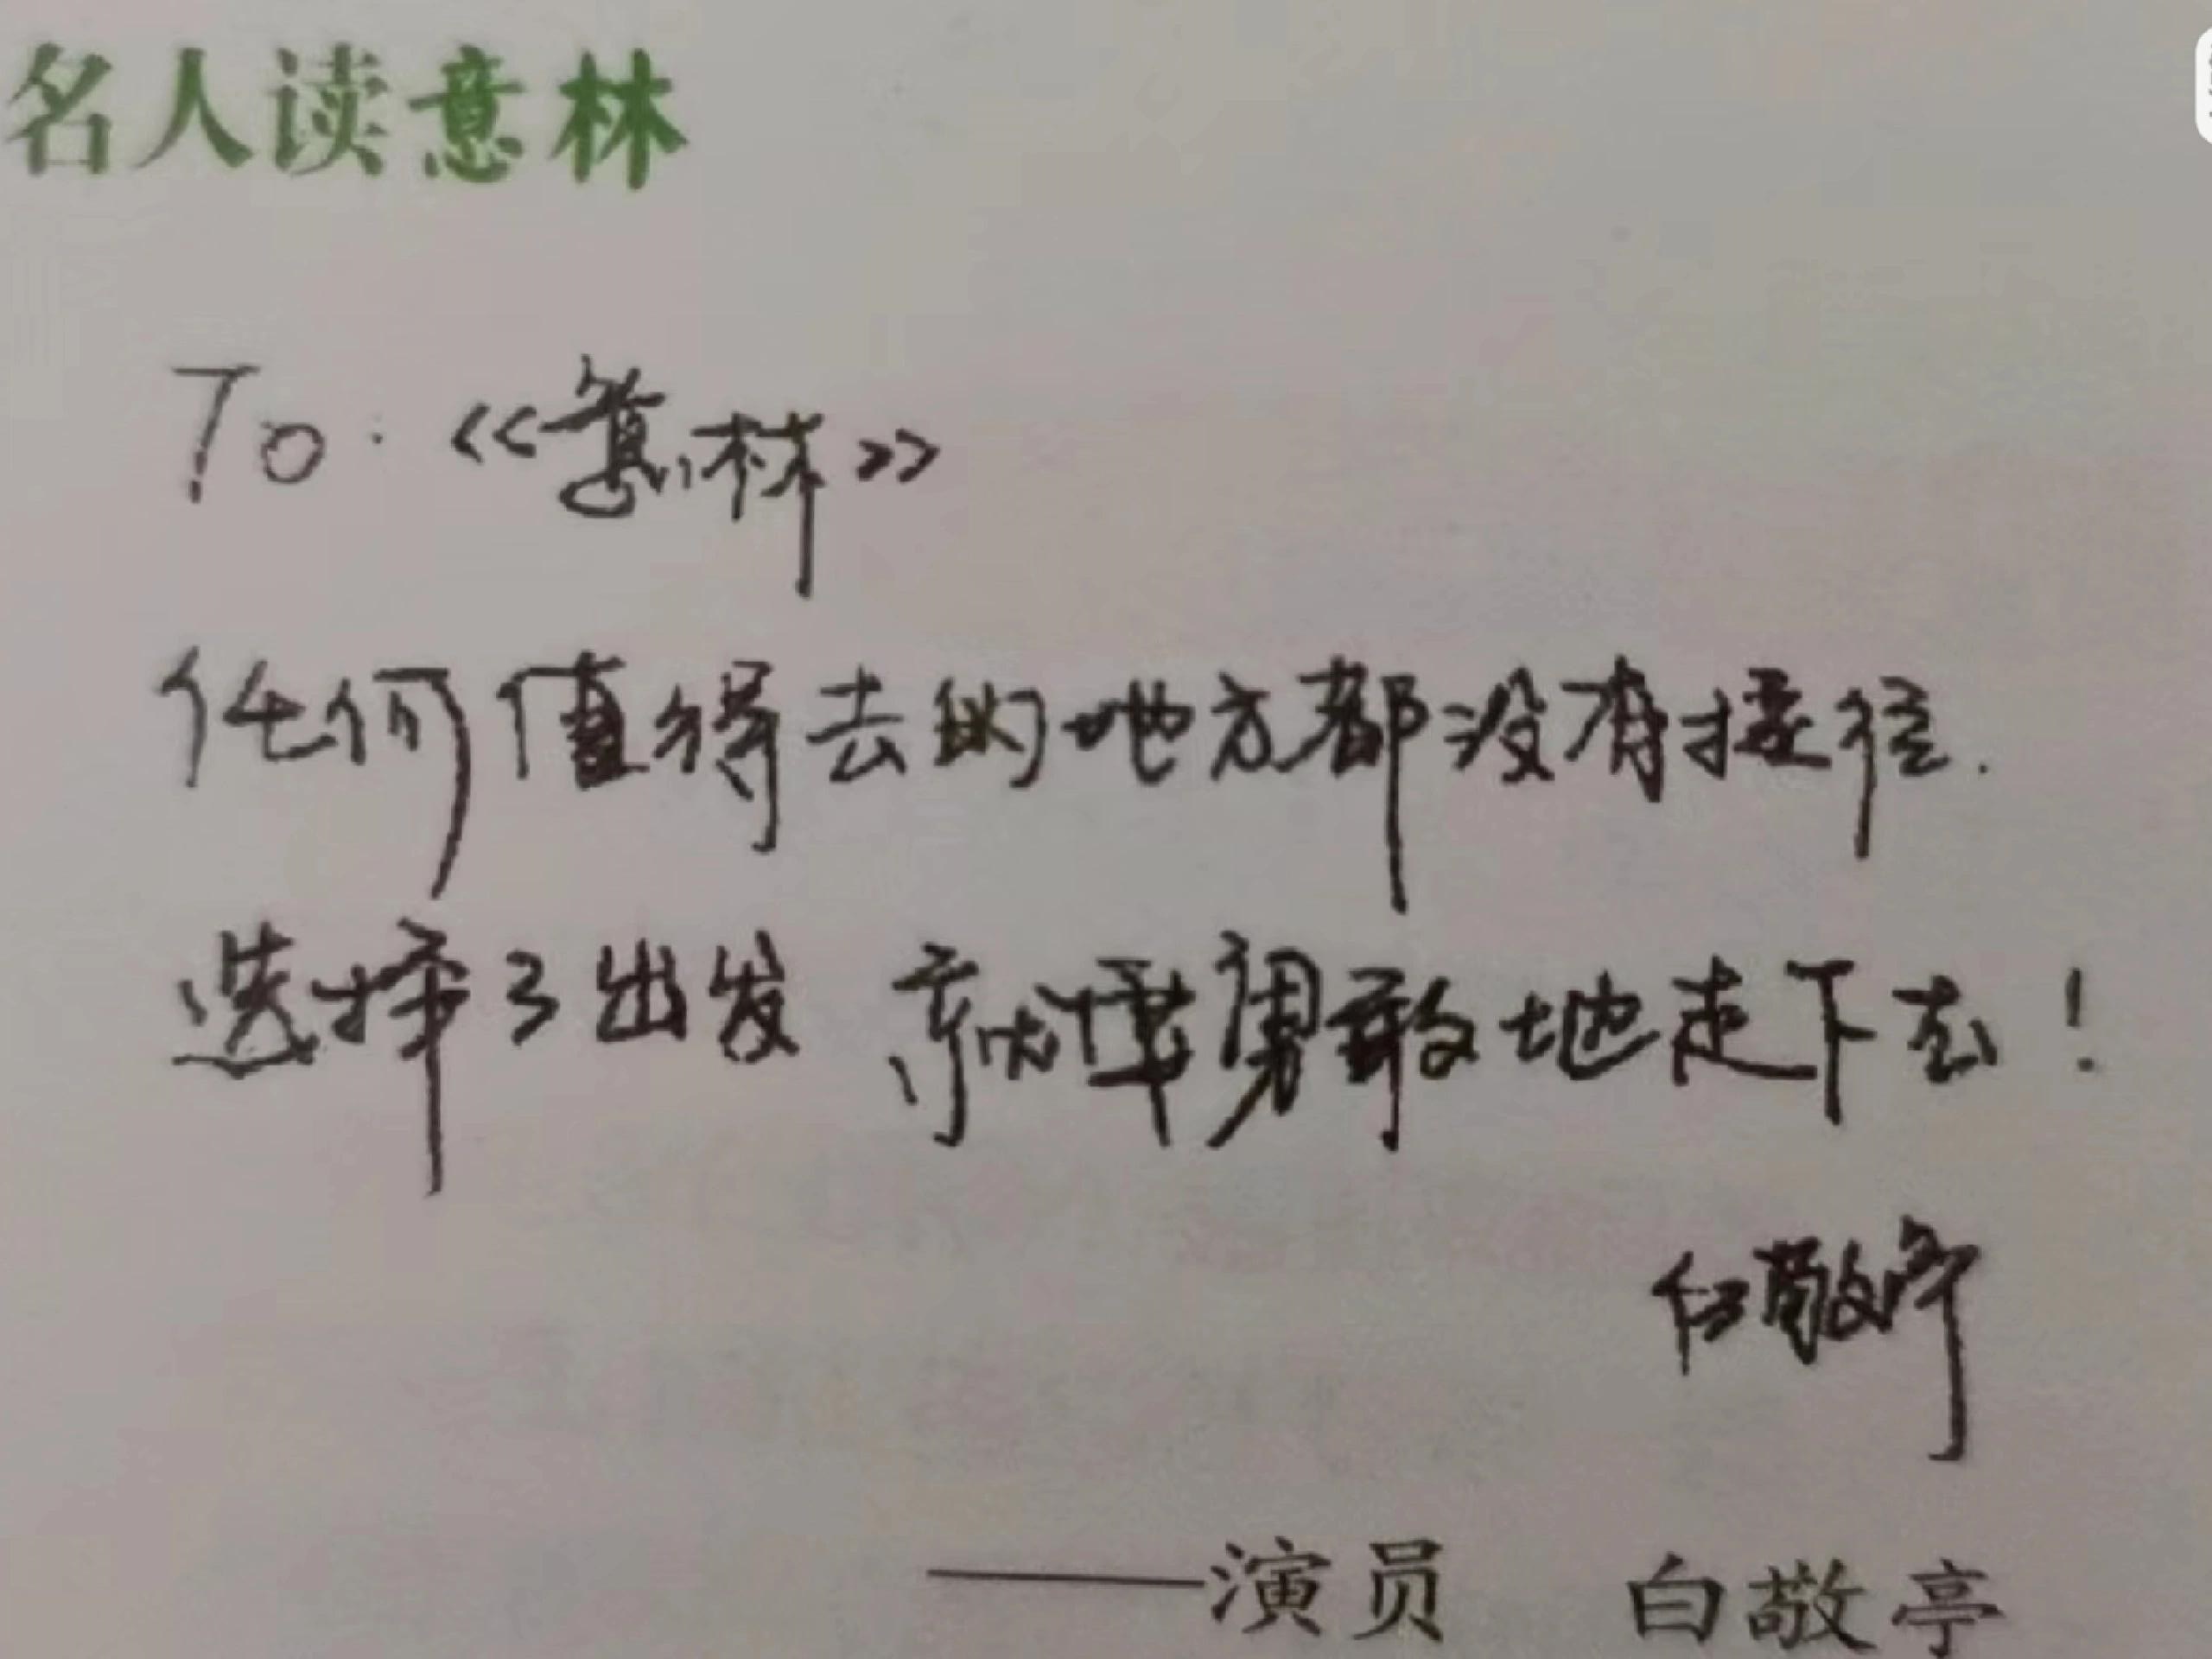 名人读意林
To:《意林》
任何值得去的地方都没有捷径.
选择了出发 就要勇敢地走下去!
白敬亭
——演员 白敬亭